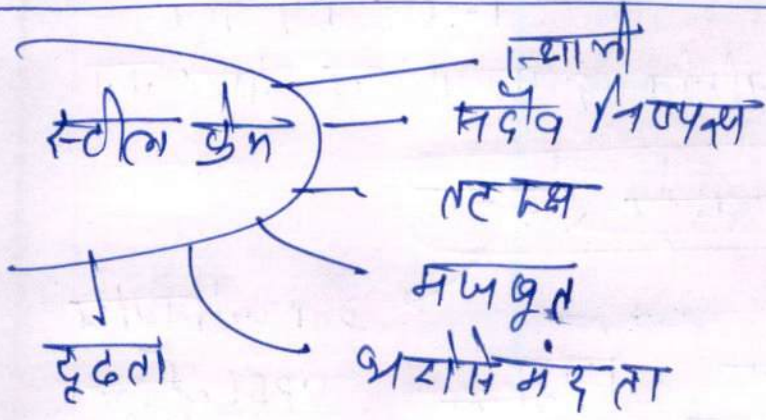 स्थायी
स्टील फ्रेम
सदैव निष्पक्ष
तटस्थ
मजबूत
दृढता
भरोसेमंदता